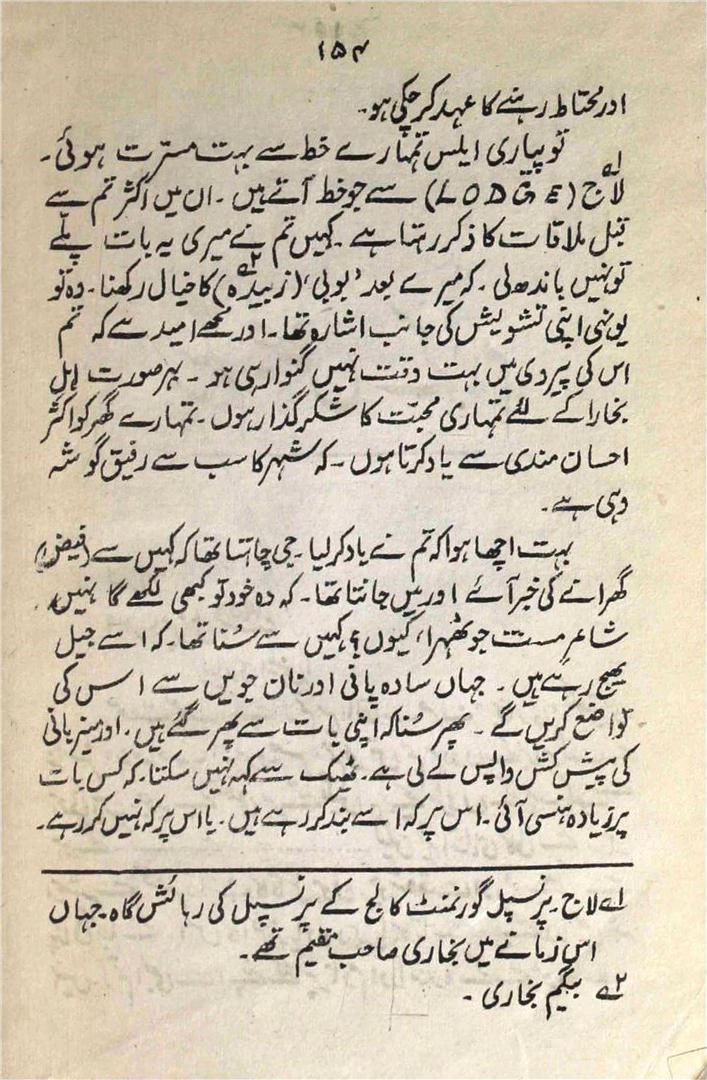 ۱۵۴
اور محتاط رہنے کا عہد کر چکی ہو۔
تو پیاری ایلس تمہارے خط سے بہت مسرت ہوئی۔
لاج۱ (LODGE) سے جو خط آتے ہیں۔ ان میں اکثر تم سے
قبل ملاقات کا ذکر رہتا ہے۔ کہیں تم نے میری یہ بات پلے
تو نہیں باندھ لی۔ کہ میرے بعد 'بوبی'، (زبیدہ)۲ کا خیال رکھنا۔ وہ تو
یونہی اپنی تشویش کی جانب اشارہ تھا۔ اور مجھے امید ہے کہ تم
اس کی پیروی میں بہت وقت نہیں گنوا رہی ہو۔ بہر صورت اہلِ
بخارا کے لئے تمہاری محبت کا شکر گذار ہوں۔ تمہارے گھر کو اکثر
احسان مندی سے یاد کرتا ہوں۔ کہ شہر کا سب سے رفیق گوشہ
وہی ہے۔
بہت اچھا ہوا کہ تم نے یاد کر لیا۔ جی چاہتا تھا کہ کہیں سے (فیض)
گھرانے کی خبر آئے اور میں جانتا تھا۔ کہ وہ خود تو کبھی لکھے گا نہیں۔
شاعرِ مست جو ٹھہرا، کیوں؟ کہیں سے سُنا تھا۔ کہ اسے جیل
بھیج رہے ہیں۔ جہاں سادہ پانی اور نان جویں سے اس کی
تواضع کریں گے۔ پھر سُنا کہ اپنی بات سے پھر گئے ہیں۔ اور میزبانی
کی پیش کش واپس لے لی ہے۔ ٹھیک سے کہہ نہیں سکتا۔ کہ کس بات
پر زیادہ ہنسی آئی۔ اس پر کہ اسے بند کر رہے ہیں۔ یا اس پر کہ نہیں کر رہے۔
۱ لاج۔ پرنسپل گورنمنٹ کالج کے پرنسپل کی رہائش گاہ۔ جہاں
اس زمانے میں بخاری صاحب مقیم تھے۔
۲ بیگم بخاری۔